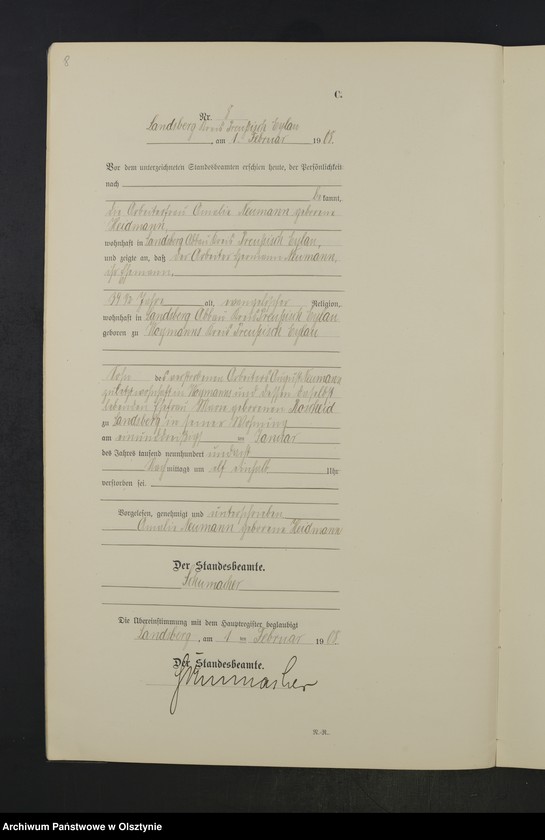 8
C.
Nr. 8
Landsberg Kreis Preußisch Eylau
, am 1. Februar 1908.
Vor dem unterzeichneten Standesbeamten erschien heute, der Persönlichkeit
nach
be kannt,
die Arbeiterfrau Amalie Neumann geborene
Heidmann
wohnhaft in Landsberg Abbau Kreis Preußisch Eylau,
und zeigte an, daß der Arbeiter Hermann Neumann,
ihr Ehemann,
Jahre alt, evangelischer Religion,
wohnhaft in Landsberg Abbau Kreis Preußisch Eylau
geboren zu Woymanns Kreis Preußisch Eylau
Sohn des verstorbenen Arbeiters August Neumann
zuletzt wohnhaft in Woymanns und dessen daselbst
lebenden Ehefrau geborenen
zu Landsberg in seiner Wohnung
am einunddreißigsten Januar
des Jahres tausend neunhundert und acht
Nachmittags um elf einhalb Uhr
verstorben sei.
Vorgelesen, genehmigt und unterschrieben
Amalie Neumann geborene Heidmann
Der Standesbeamte.
Schumacher
Die Übereinstimmung mit dem Hauptregister beglaubigt
Landsberg, am 1 ten Februar 1908.
Der Standesbeamte.
Schumacher
N.-R..
Archiwum Państwowe w Olsztynie